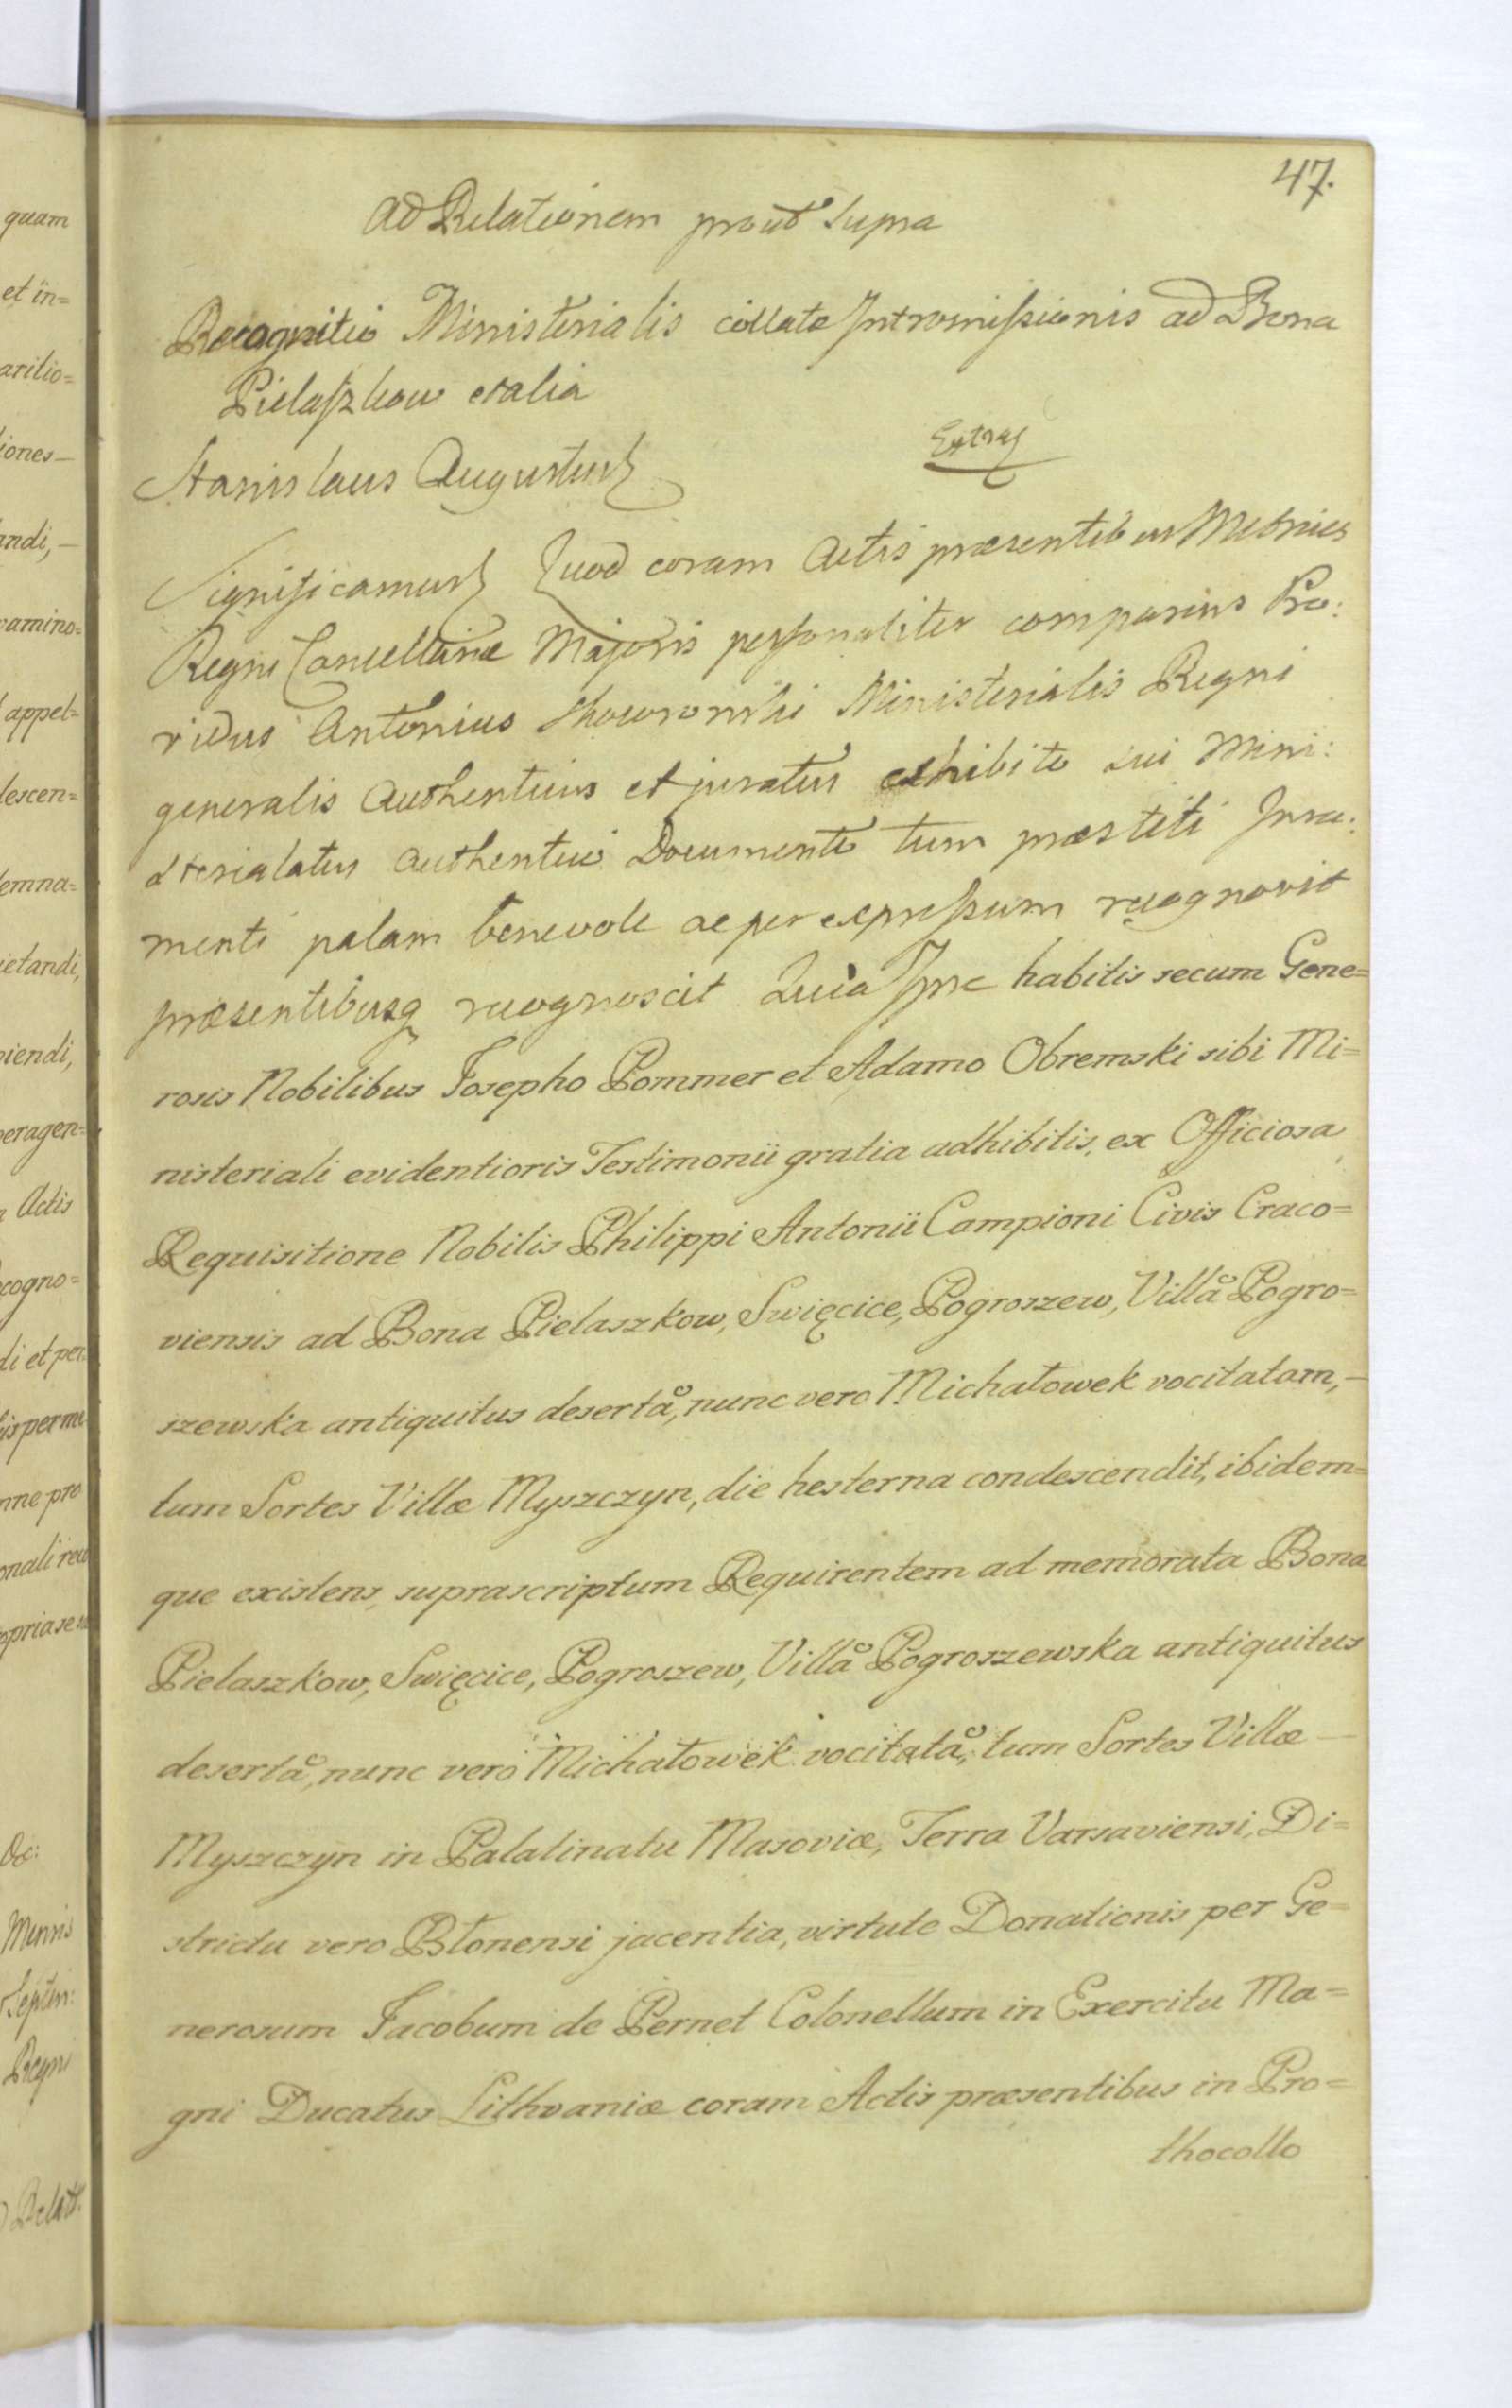 47.
Ad Relationem prout supra
Recognitio Ministerialis collatæ Intromissionis ad Bona
Pielaszkow et alia
Extrad
Stanislaus Augustus
Significamus Quod coram Actis præsentibus Metrices
Regni Cancellariæ Majoris personaliter comparens Pro:
vidus Antonius Ministerialis Regni
generalis Authenticus et juratus exhibito sui Mini:
sterialatus authentico Documento tum præstiti Jura:
menti palam benevole ac per expressum recognovit
præsentibusq recognoscit Quia Ipse habitis secum Gene=
rosis Nobilibus Josepho Pommer et Adamo Obremski sibi Mi=
nisteriali evidentioris Testimonii gratia adhibitis, ex Officiosa
Requisitione Nobilis Philippi Antonii Campioni Civis Craco=
viensis ad Bona Pielaszkow, Swięcice, Pogroszew, Villa Pogro=
szewska antiquitus deserta, nunc vero Michałowek vocitatam,-
tum Sortes Villæ Myszczyn, die hesterna condescendit, ibidem=
que existens, suprascriptum Requirentem ad memorata Bona
Pielaszkow, Swięcice, Pogroszew, Villa Pogroszewska antiquitus
deserta, nunc vero Michałowek vocitata, tum Sortes Villæ -
Myszczyn in Palatinatu Masoviæ, Terra Varsaviensi, Di=
strictu vero Błonensi jacentia, virtute Donationis per Ge=
nerosum Jacobum de Pernet Colonellum in Exercitu Ma=
gni Ducatus Lithvaniæ coram Actis præsentibus in Pro=
thocollo